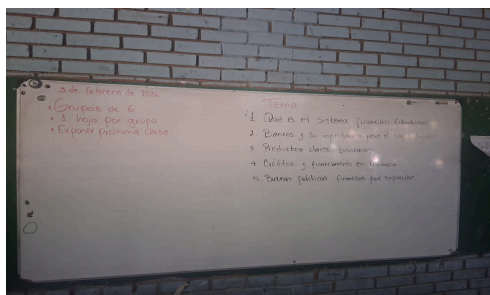 3 de febrero de
• Grupos de 6
• 1 hoja por grupo
• Exponer próxima clase
Tema
1 Qué es el sistema financiero
2 Bancos y su para el
3 Productos claves bancarios
4 Créditos y financiamiento en
5 Buenas prácticas financieras para emprender